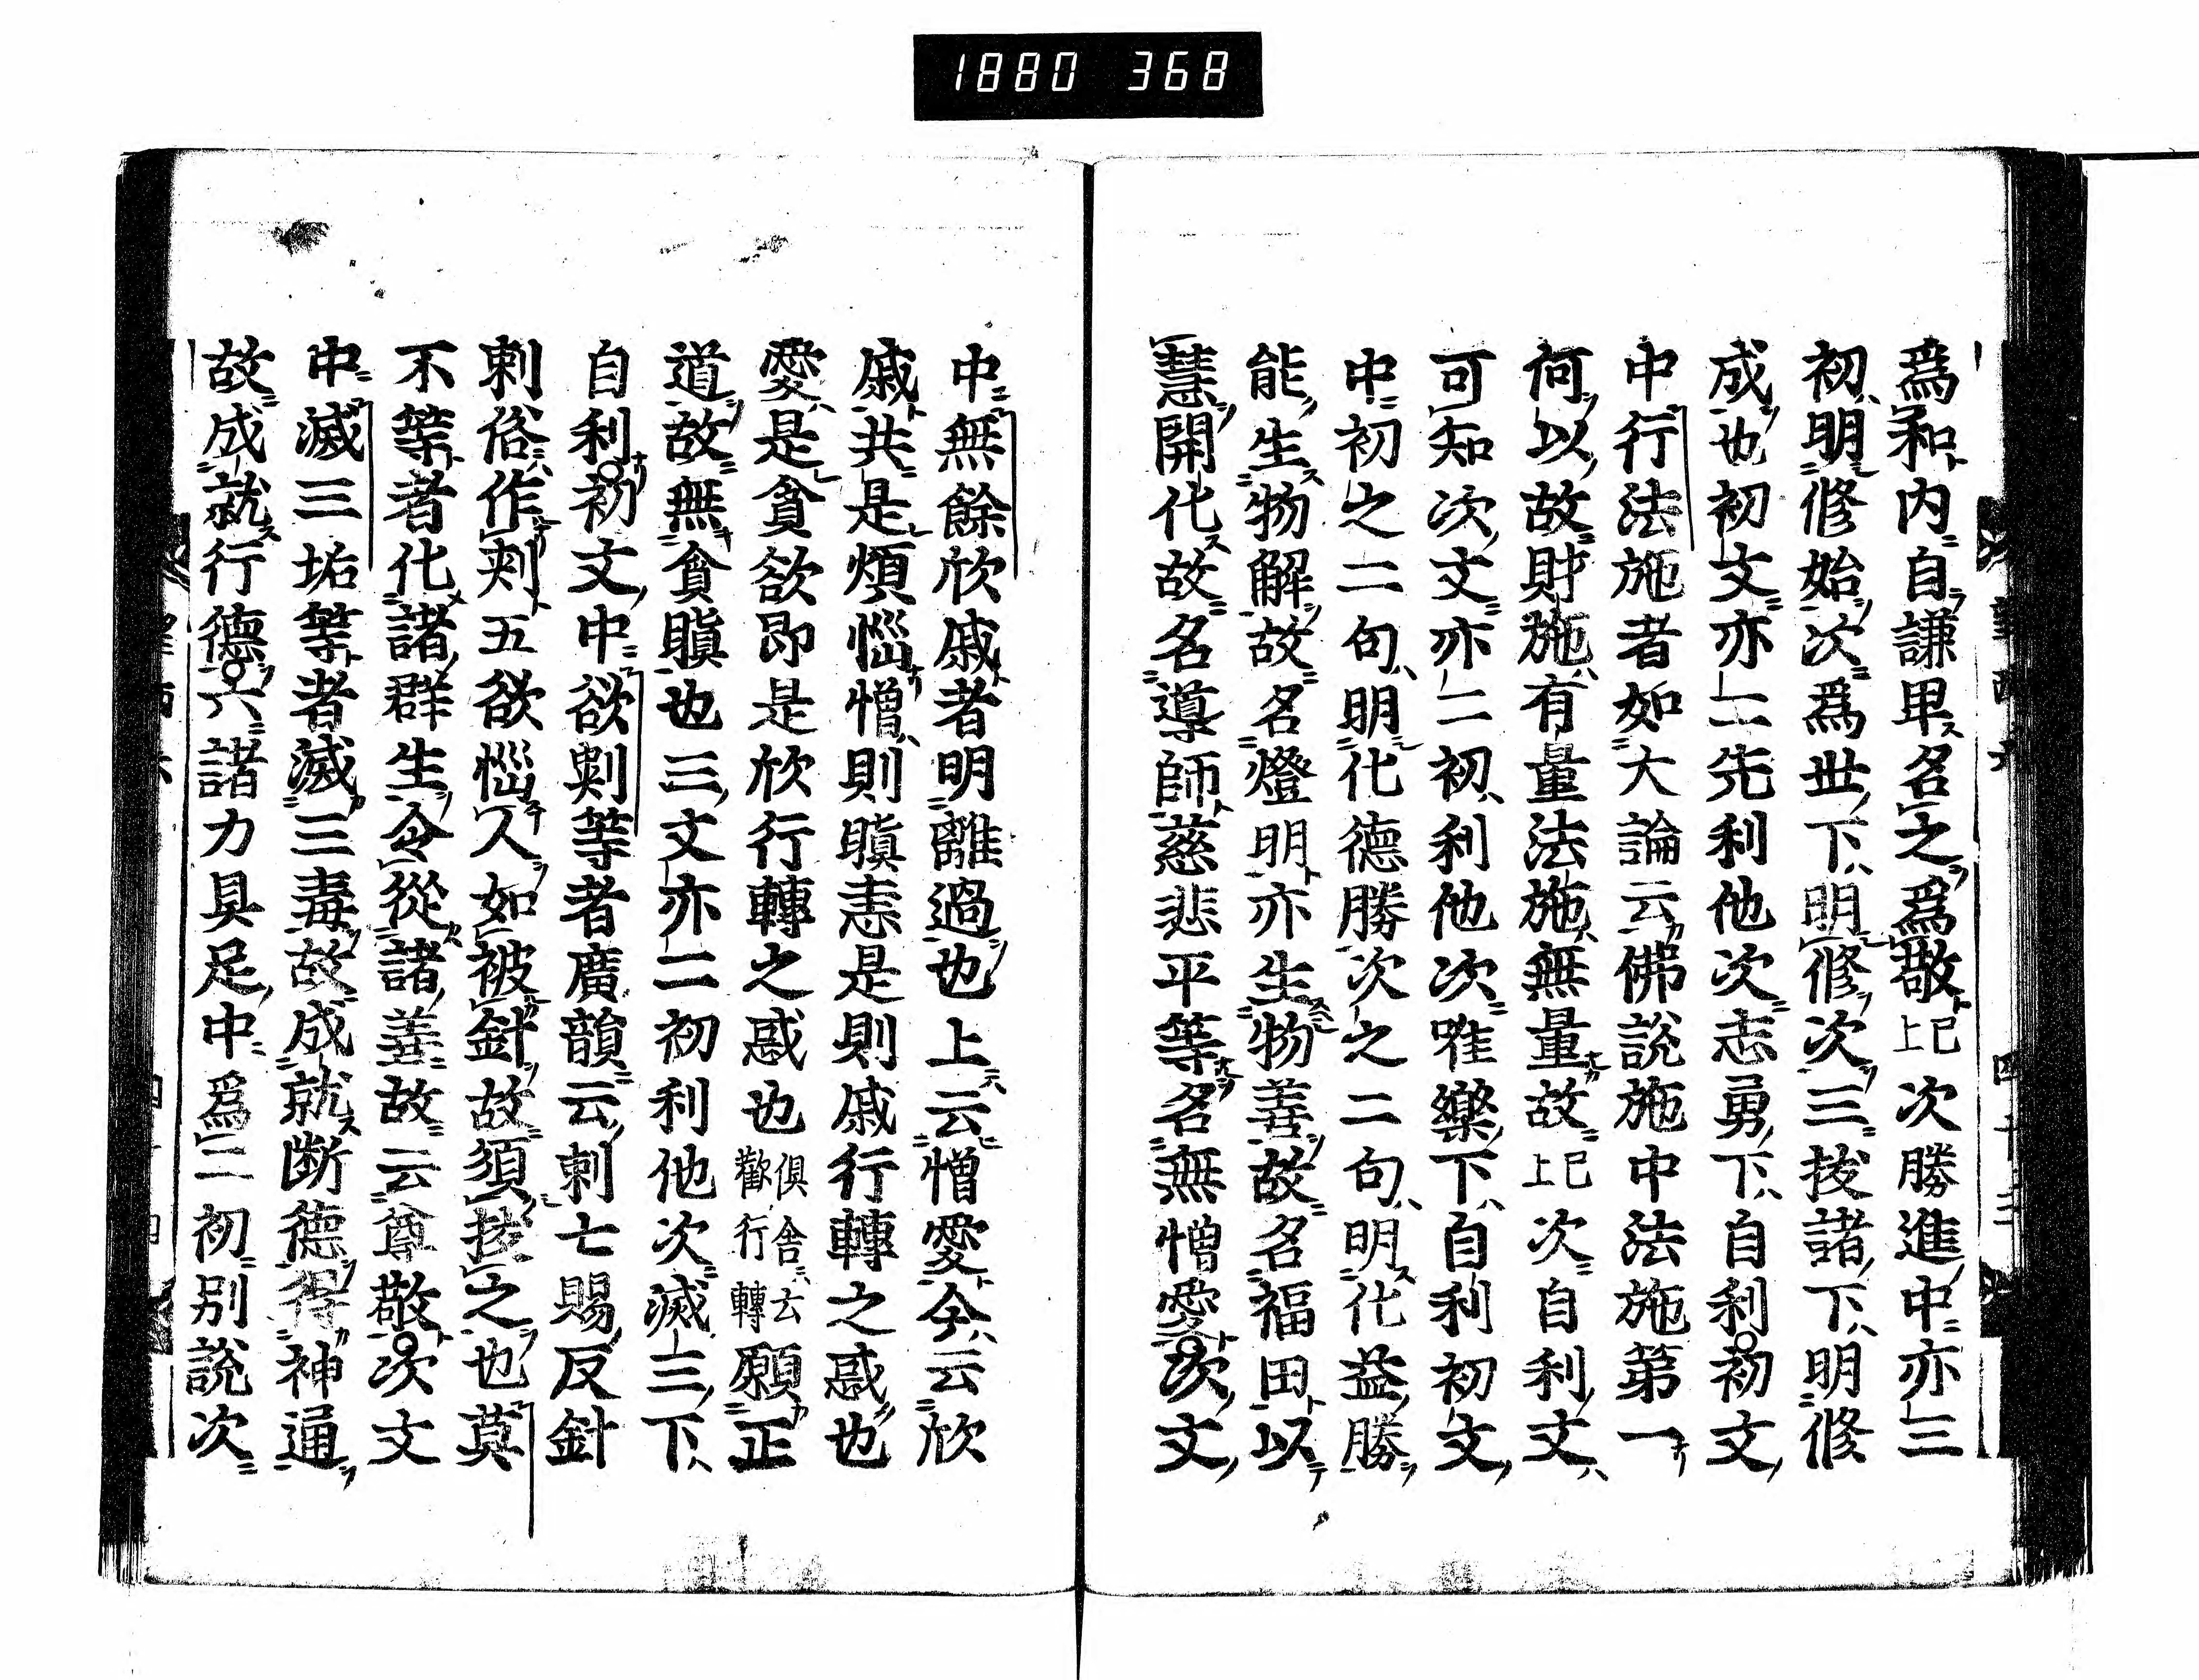 1880 368
爲和内自謙卑名之爲敬已上次勝進中亦三
初明修始次爲世下明修次三拔諸下明修
成也初文亦二先利他次志勇下自利初文
中行法施者如大論云佛說施中法施第一
何以故財施有量法施無量故已上次自利文
可知次文亦二初利他次唯樂下自利初文
中初之二句明化德勝次之二句明化益勝
能生物解故名燈明亦生物善故名福田以
慧開化故名導師慈悲平等名無憎愛次文
中無餘欣戚者明離過也上云憎愛今云欣
戚共是煩惱憎則瞋恚是則戚行轉之慼也
愛是貪欲即是欣行轉之慼也俱舍云歡行轉願正
道故無貪瞋也三文亦二初利他次滅三下
自利初文中欲刺等者廣韻云刺七賜反針
刺俗作刾五欲惱人如被針故須拔之也莫
不等者化諸群生令從諸善故云尊敬次文
中滅三垢等者滅三毒故成就断德得神通
故成就行德六諸力具足中爲二初別說次